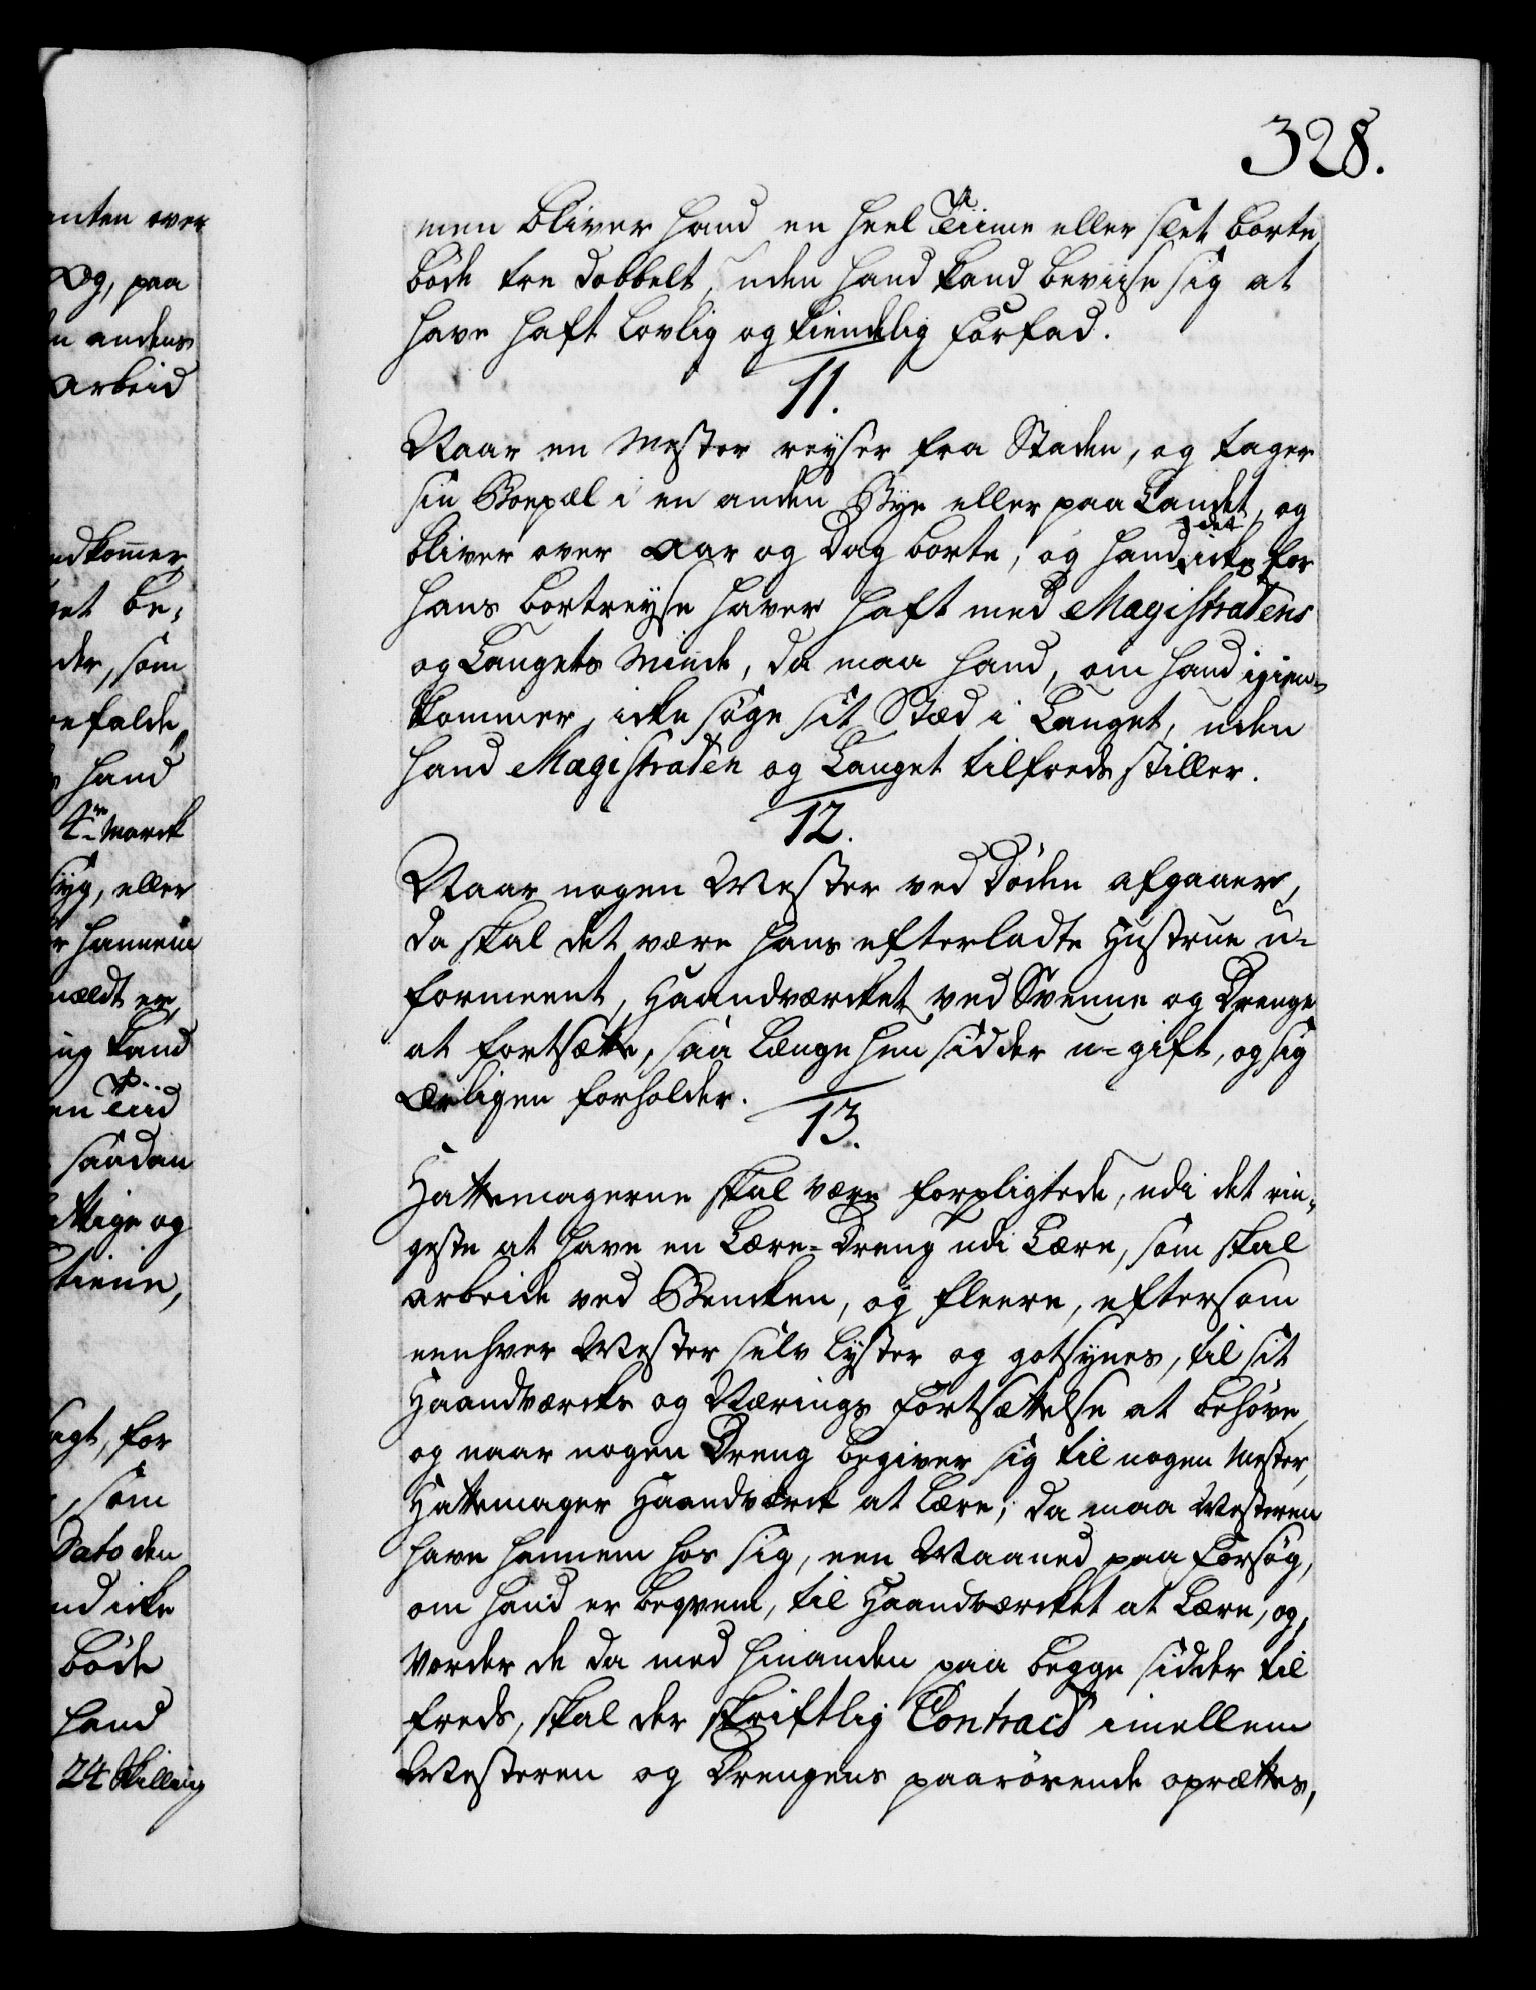 328.
men bliver hand en heel Tiime eller slet borte,
bøde tre dobbelt, uden hand kand beviise sig at
have haft lovlig og kiendelig Forfad.
11.
Naar en Mester reyser fra Staden, og tager
sin Boepæl i en anden Bye eller paa Landet, og
bliver over Aar og Dag borte, og hand det icke for
hans bortreyse haver haft med Magistratens
og Laugets Minde, da maa hand, om hand igien-
kommer, icke søge sit Stæd i Lauget, uden
hand Magistraten og Lauget tilfreds stiller.
12.
Naar nogen Mester ved Døden afgaaer,
da skal det være hans efterladte Hustrue u-
formeent, Haandværcket ved Svenne og Drenge
at fortsætte, saa længe hun sidder u-gift, og sig
ærligen forholder.
13.
Hattemagerne skal være forpligtede, udi det rin-
geste at have en Lære-Dreng udi Lære, som skal
arbeide ved Bencken, og fleere, eftersom
eenhver Mester selv lyster og got synes, til sit
Haandværcks og Nærings Fortsættelse at behøve,
og naar nogen Dreng begiver sig til nogen Mester,
Hattemager Haandværck at lære, da maa Mesteren
have hannem hos sig, een Maaned paa Forsøg,
om hand er beqvem, til Haandværcket at lære, og,
vorder de da med hinanden paa begge sidder til
freds, skal der skriftlig Contract imellem
Mesteren og Drengens paarørende oprættes,
enten over
Og, paa
en andens
Arbeid
indkom̅er,
be-
der, som
hand
4re Marck
syg, eller
hannem
meldt er,
kand
en Tiid
saadan
og
tiene,
sagt, for
, som
Dato den
icke
bøde
hand
24 Skilling